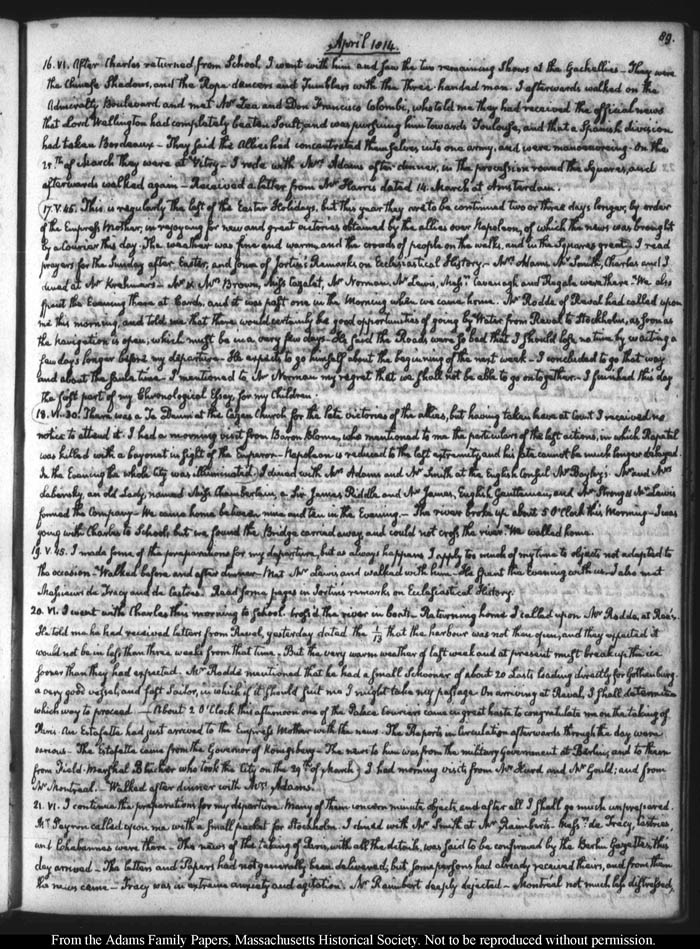 April 1814.
89.
16. VI. After Charles returned from School I went with him and saw the two remaining Shows at the Gachellies — They were
the Chinese Shadows, and the Rope dancers and Tumblers with the Three handed man. I afterwards walked on the
Admiralty Boulevard and met Mr. Lea and Don Francisco Colombi, who told me they had received the official news
that Lord Wellington had completely beaten Soult, and was pursuing him towards Toulouse, and that a Spanish division
had taken Bordeaux — They said the Allies had concentrated themselves into one army, and were manoeuvering — On the
25th. of March they were at Vitry — I rode with Mrs. Adams after dinner, in the procession round the Squares, and
afterwards walked again — Received a letter from Mr. Harris dated 14. March at Amsterdam.
17. V. 45. This is regularly the last of the Easter Holidays, but this year they are to be continued two or three days longer, by order
of the Empress Mother, in rejoycing for new and great victories obtained by the allies over Napoleon, of which the news was brought
by a Courier this day. The weather was fine and warm, and the crowds of people on the walks, and in the Squares great — I read
prayers for the Sunday after Easter, and some of Jortin's Remarks on Ecclesiastical History. — Mrs. Adams, Mr. Smith, Charles and I
dined at Mr. Krehmer's — Mr. & Mrs. Brown, Miss Cazalet, Mr. Norman, Mr. Lewis, Messrs. Cavenagh and Regale were there. We also
spent the Evening there at Cards, and it was past one in the Morning when we came home. Mr. Rodde of Reval had called upon
me this morning, and told me that there would certainly be good opportunities of going by Water from Reval to Stockholm, as soon as
the navigation is open; which must be in a very few days — He said the Roads were so bad that I should lose no time by waiting a
few days longer before my departure — He expects to go himself about the beginning of the next week — I concluded to go that way
and about the same time — I mentioned to Mr. Norman my regret that we shall not be able to go on together — I finished this day
the first part of my Chronological Essay, for my Children.
18. VI. 30. There was a Te Deum at the Cazan church, for the late victories of the allies, but having taken leave at Court I received no
notice to attend it. I had a morning visit from Baron Blome, who mentioned to me the particulars of the last actions, in which Rapatel
was killed with a bayonet in sight of the Emperor — Napoleon is reduced to the last extremity, and his fate cannot be much longer delayed.
In the Evening the whole City was illuminated. I dined with Mrs. Adams and Mr. Smith at the English Consul Mr. Bayley's — Mr. and Mrs.
Labensky, an old Lady, named Miss Chamberlain, a Sir James Riddle and Mr. James, English Gentlemen, and Mr. Strong & Mr. Lewis
formed the Company — We came home between nine and ten in the Evening. — The river broke up about 5 O'Clock this Morning — I was
going with Charles to School; but we found the Bridge carried away and could not cross the river. We walked home.
19. V. 45. I made some of the preparations for my departure, but as always happens I apply too much of my time to objects not adapted to
the occasion — Walked before and after dinner — Met Mr. Lewis and walked with him — He spent the Evening with us. I also met
Messieurs de Tracy and de Castres. Read some pages in Jortins remarks on Ecclesiastical History.
20. VI. I went with Charles this morning to School. Cross'd the river in boats — Returning home I called upon Mr. Rodde, at Rae's.
He told me he had received letters from Reval, yesterday dated the 1/13 that the harbour was not then open, and they expected it
would not be in less than three weeks from that time. — But the very warm weather of last week and at present must break up the ice
sooner than they had expected. Mr. Rodde mentioned that he had a small Schooner of about 20 Lasts loading directly for Gothenburg.
a very good vessel, and fast Sailor, in which if it should suit me I might take my passage. On arriving at Reval, I shall determine
which way to proceed — About 2 O'Clock this afternoon one of the Palace Couriers came in great haste to congratulate me on the taking of
Paris. An Estafette had just arrived to the Empress Mother with the news. The Reports in circulation afterwards through the day were
various — The Estafette came from the Governor of Königsberg — The news to him was from the military Government at Berlin; and to them
from Field-Marshal Blucher who took the City on the 29th. of March) I had morning visits from Mr. Hurd and Mr. Gould; and from
Mr. Montreal. Walked after dinner with Mrs. Adams.
21. VI. I continue the preparations for my departure. Many of them concern minute objects; and after all I shall go much unprepared.
Mr. Peyron called upon me with a small packet for Stockholm. I dined with Mr. Smith at Mr. Raimbert's — Messrs. de Tracy, Castres
and Chabannes were there — The news of the taking of Paris, with all the details, was said to be confirmed by the Berlin Gazette, this
day arrived — The letters and Papers had not generally been delivered; but some persons had already received theirs, and from them
the news came — Tracy was in extreme anxiety and agitation. Mr. Raimbert deeply dejected — Montréal not much less distressed.
From the Adams Family Papers, Massachusetts Historical Society. Not to be reproduced without permission.